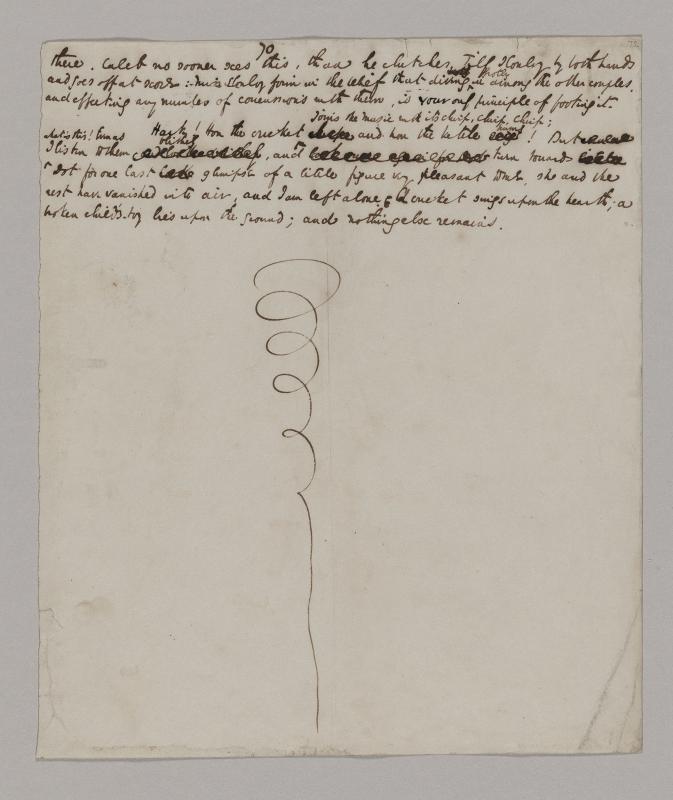 70
there. Caleb no sooner sees this, than he clutches Tilly Slowboy by both hands
and goes off at score; Miss Slowboy firm in the belief that diving hotly in among the other couples,
and effecting any number of concussions with them, is your only principle of footing it.
Hark! how the cricket joins the music with its chirp, chirp, chirp; and how the kettle hums! But
what is this! Even as I listen to them, blithely, and turn towards
Dot for one last glimpse of a little figure very pleasant to me, she and the
rest have vanished into air, and I am left alone. A cricket sings upon the hearth; a
broken child's-toy lies upon the ground; and nothing else remains.